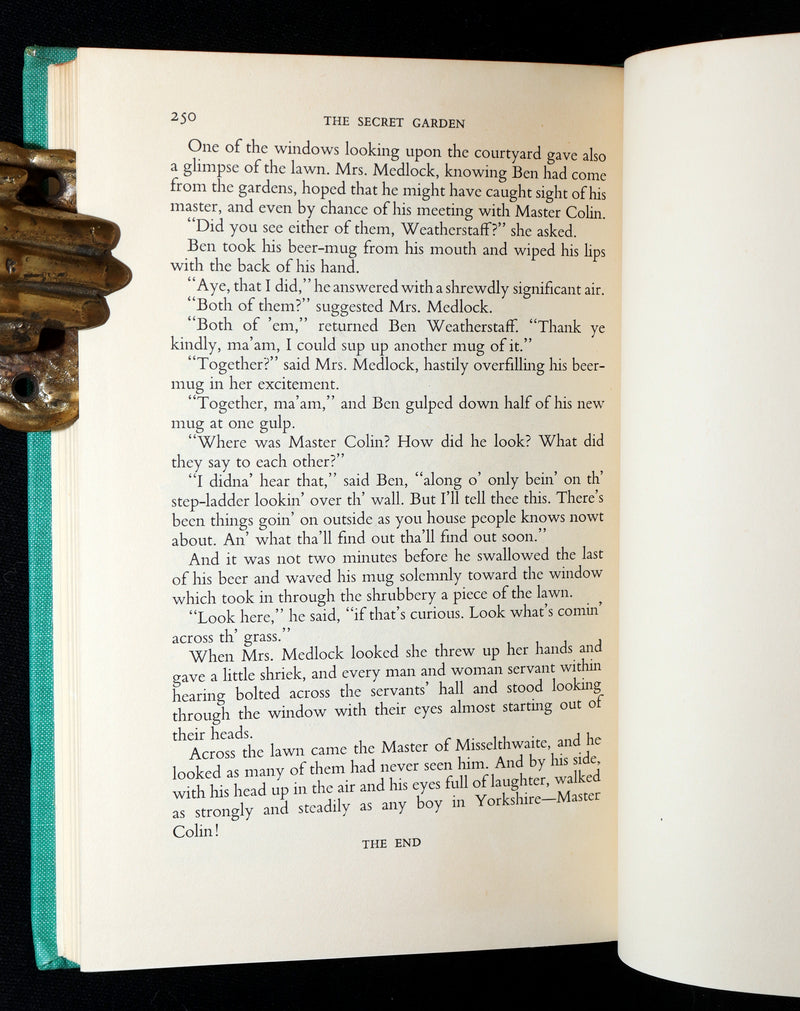 250
THE SECRET GARDEN
One of the windows looking upon the courtyard gave also
a glimpse of the lawn. Mrs. Medlock, knowing Ben had come
from the gardens, hoped that he might have caught sight of his
master, and even by chance of his meeting with Master Colin.
“Did you see either of them, Weatherstaff?” she asked.
Ben took his beer-mug from his mouth and wiped his lips
with the back of his hand.
“Aye, that I did,” he answered with a shrewdly significant air.
“Both of them?” suggested Mrs. Medlock.
“Both of ’em,” returned Ben Weatherstaff. “Thank ye
kindly, ma’am, I could sup up another mug of it.”
“Together?” said Mrs. Medlock, hastily overfilling his beer-
mug in her excitement.
“Together, ma’am,” and Ben gulped down half of his new
mug at one gulp.
“Where was Master Colin? How did he look? What did
they say to each other?”
“I didna’ hear that,” said Ben, “along o’ only bein’ on th’
step-ladder lookin’ over th’ wall. But I’ll tell thee this. There’s
been things goin’ on outside as you house people knows nowt
about. An’ what tha’ll find out tha’ll find out soon.”
And it was not two minutes before he swallowed the last
of his beer and waved his mug solemnly toward the window
which took in through the shrubbery a piece of the lawn.
“Look here,” he said, “if that’s curious. Look what’s comin’
across th’ grass.”
When Mrs. Medlock looked she threw up her hands and
gave a little shriek, and every man and woman servant within
hearing bolted across the servants’ hall and stood looking
through the window with their eyes almost starting out of
their heads.
Across the lawn came the Master of Misselthwaite, and he
looked as many of them had never seen him. And by his side,
with his head up in the air and his eyes full of laughter, walked
as strongly and steadily as any boy in Yorkshire—Master
Colin!
THE END